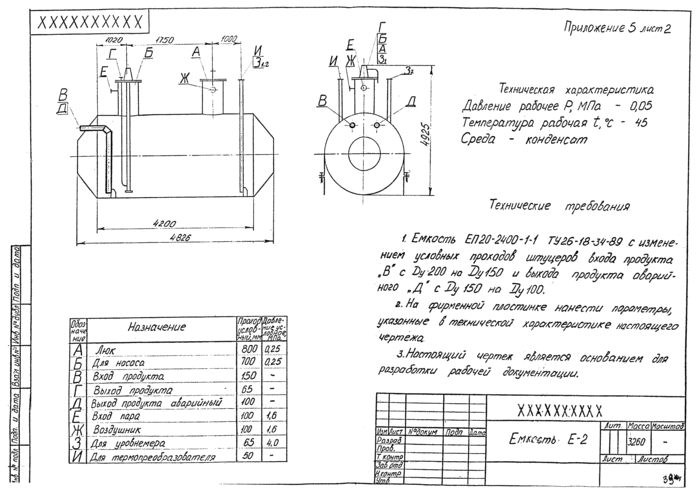 XXXXXXXXXX
Приложение 5 лист 2
1020
1750
1000
Г
Б
А
И
З1,2
Е
Ж
В
Д
4200
4826
Г
Б
А
З1
Е
Ж
И
З2
В
Д
4925
Техническая характеристика
Давление рабочее Р, МПа - 0,05
Температура рабочая t,°с - 45
Среда - конденсат
Технические требования
1. Емкость ЕП20-2400-1-1 ТУ26-18-34-89 с измене-
нием условных проходов штуцеров входа продукта
„В" с Dу 200 на Dу 150 и выхода продукта аварий-
ного „Д" с Dу 150 на Dу 100.
2. На фирменной пластинке нанести параметры,
указанные в технической характеристике настоящего
чертежа.
3. Настоящий чертеж является основанием для
разработки рабочей документации.
Обоз начение Назначение Проход условный, мм Давление условное, МПа
А Люк 800 0,25
Б Для насоса 700 0,25
В Вход продукта 150 -
Г Выход продукта 65 -
Д Выход продукта аварийный 100 -
Е Вход пара 100 1,6
Ж Воздушник 100 1,6
З Для уровнемера 65 4,0
И Для термопреобразователя 50 -
XXXXXXXXX
Изм Лист №докум Подп Дата
Разраб
Пров.
Т контр
Зав отд
Н.контр
Утв
Емкость Е-2
Лит. Масса Масштаб
3260 -
Лист Листов
Подп и дата